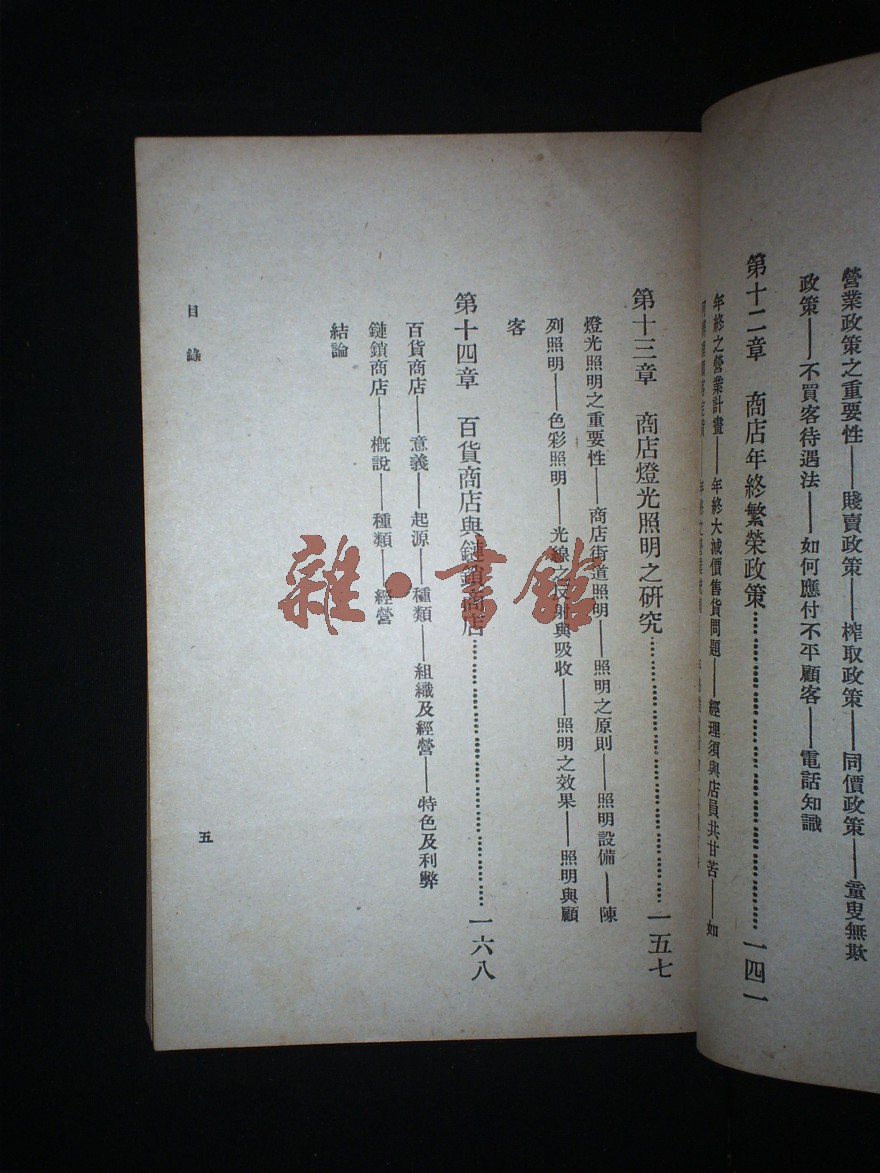 營業政策之重要性——賤賣政策——榨取政策——同價政策——童叟無欺
政策——不買客待遇法——如何應付不平顧客——電話知識
第十二章　商店年終繁榮政策……………………………一四一
年終之營業計畫——年終大減價售貨問題——經理須與店員共甘苦——如
第十三章　商店燈光照明之研究……………………………一五七
燈光照明之重要性——商店街道照明——照明之原則——照明設備——陳
列照明——色彩照明——光線之反射與吸收——照明之效果——照明與顧
客
第十四章　百貨商店與鏈鎖商店……………………………一六八
百貨商店——意義——起源——種類——組織及經營——特色及利弊
鏈鎖商店——概說——種類——經營
結論
目錄
五
雜·書館